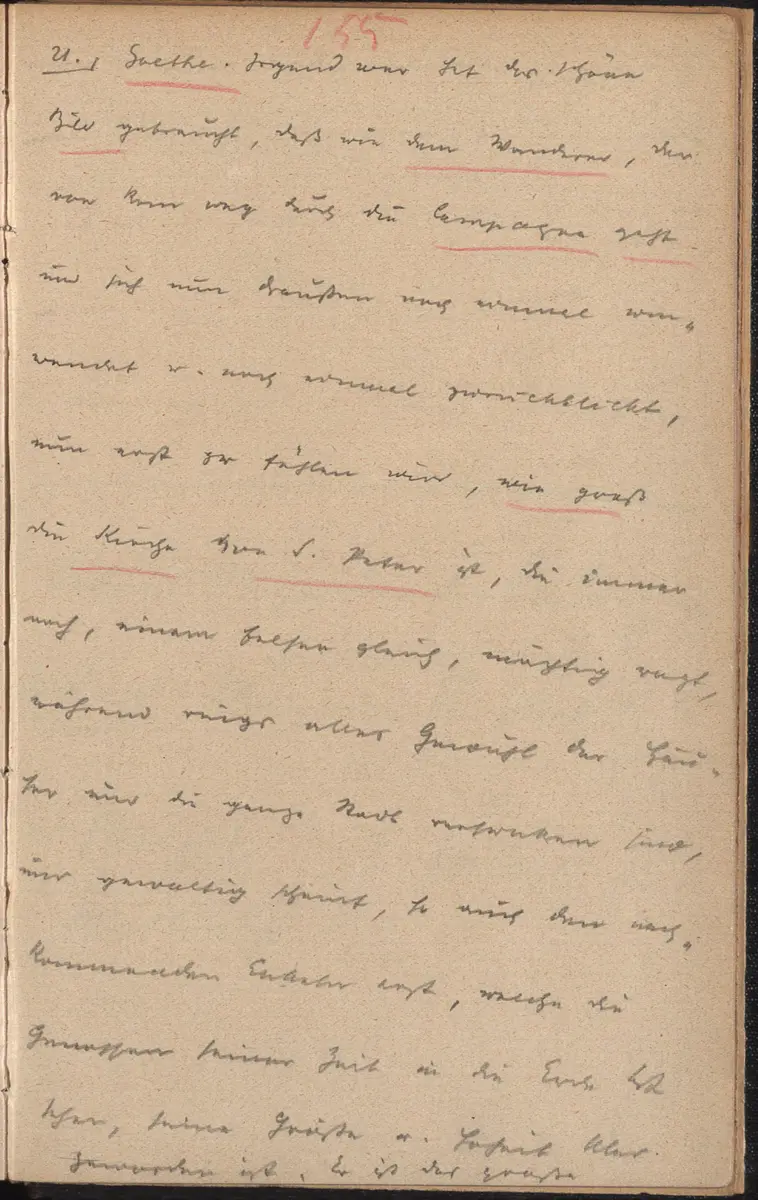 155
21., Goethe. Irgend wer hat das schöne
Bild gebraucht, daß wie dem Wanderer, der
von Rom weg durch die Campagna geht
und sich nun draußen noch einmal um-
wendet u. noch einmal zurückblickt,
nun erst zu fühlen wird, wie groß
die Kirche von S. Peter ist, die immer
noch, einem Felsen gleich, mächtig ragt,
während rings alles Gewühl der Häu-
ser und die ganze Stadt versunken sind,
nur gewaltig scheint, so auch den nach-
kommenden Enkeln erst, welche die
Genossen seiner Zeit in die Erde
sehen, seine Größe u. Hoheit klar
geworden ist. Er ist das große